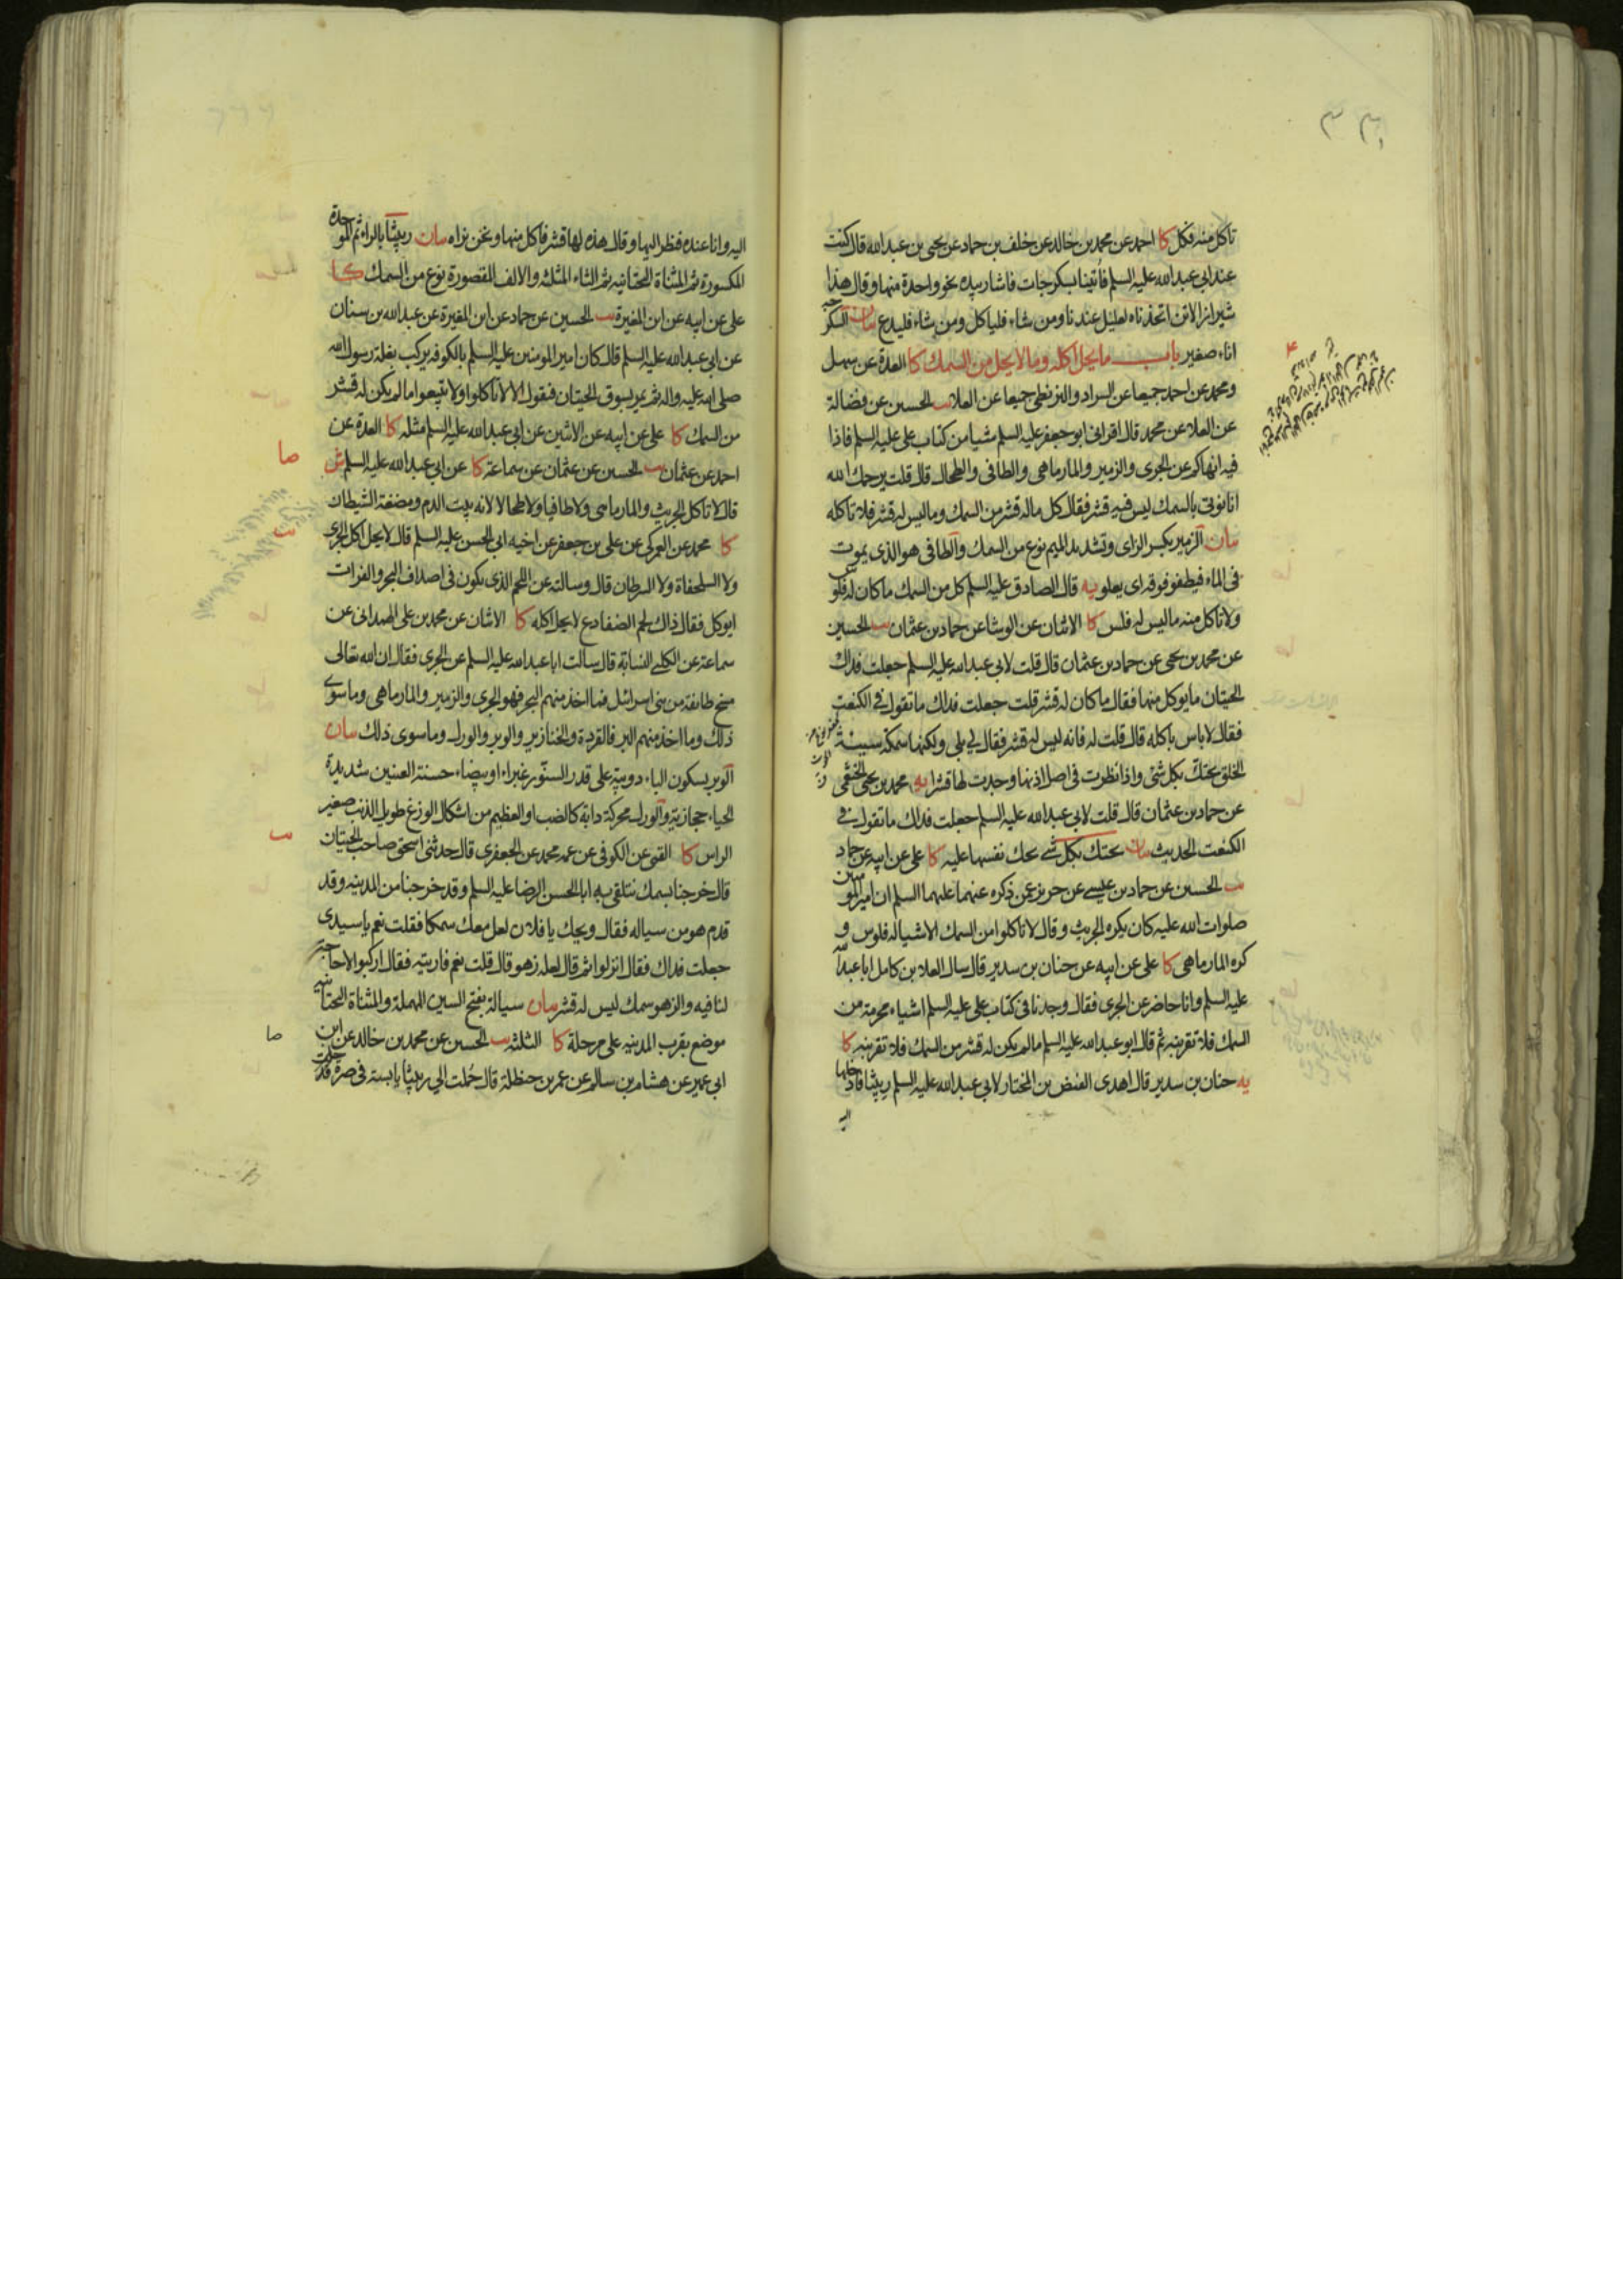 تاكل منه فكل كا احمد عن محمد بن خالد عن خلف بن حماد عن يحيى بن عبد الله قال كنت
عند ابي عبد الله عليه السلم فاتينا بسكرجات فاشار بيده نحو واحدة منها وقال هذا
شيراز الاتن اتخذناه لعليل عندنا ومن شاء فلياكل ومن شاء فليدع بيان السكرجة
اناء صغير باب ما يحل اكله وما لا يحل من السمك كا العدة عن سهل
ومحمد عن احمد جميعا عن السراد والبزنطي جميعا عن العلا يب الحسين عن فضالة
عن العلا عن محمد قال اقراني ابو جعفر عليه السلم شيا من كتاب على عليه السلم فاذا
فيه انهاكم عن الجرى والزمير والمارماهى والطافى والطحال قال قلت يرحمك الله
انا نوتى بالسمك ليس فيه قشر فقال كل ماله قشر من السمك وما ليس له قشر فلا تاكله
بيان الزمير بكسر الزاى وتشديد الميم نوع من السمك والطافى هو الذى يموت
فى الماء فيطفو فوقه اى يعلو يه قال الصادق عليه السلم كل من السمك ما كان له فلوس
ولا تاكل منه ما ليس له فلس كا الاثنان عن الوشا عن حماد بن عثمان يب الحسين
عن محمد بن يحيى عن حماد بن عثمان قال قلت لابي عبد الله عليه السلم جعلت فداك
الحيتان ما يوكل منها فقال ما كان له قشر قلت جعلت فداك ما تقول في الكنعت
فقال لا باس باكله قال قلت له فانه ليس له قشر فقال لي بلى ولكنها سمكة سيئة
الخلق تحتك بكل شئ واذا نظرت فى اصل اذنها وجدت لها قشرا يه محمد بن يحيى الخثعمى
عن حماد بن عثمان قال قلت لابي عبد الله عليه السلم جعلت فداك ما تقول في
الكنعت الحديث بيان تحتك بكل شئ تحك نفسها عليه كا على عن ابيه عن حماد
يب الحسين عن حماد بن عيسى عن حريز عمن ذكره عنهما عليهما السلم ان امير المومنين
صلوات الله عليه كان يكره الجريث وقال لا تاكلوا من السمك الا شيا له فلوس و
كره المارماهى كا على عن ابيه عن حنان بن سدير قال سال العلا بن كامل ابا عبد الله
عليه السلم وانا حاضر عن الجرى فقال وجدنا فى كتاب على عليه السلم اشياء محرمة من
السمك فلا تقربنه ثم قال ابو عبد الله عليه السلم ما لم يكن له قشر من السمك فلا تقربنه كا
يه حنان بن سدير قال اهدى الفيض بن المختار لابي عبد الله عليه السلم ربيثا فادخلها
اليه
اليه وانا عنده فنظر اليها وقال هذه لها قشر فاكل منها ونحن نراه بيان ربيثا بالراء ثم الموحدة
المكسورة ثم المثناة التحتانيه ثم الثاء المثلثه والالف المقصورة نوع من السمك كا
على عن ابيه عن ابن المغيرة يب الحسين عن حماد عن ابن المغيرة عن عبد الله بن سنان
عن ابي عبد الله عليه السلم قال كان امير المومنين عليه السلم بالكوفه يركب بغلة رسول الله
صلى الله عليه واله ثم يمر بسوق الحيتان فيقول الا لا تاكلوا ولا تبيعوا ما لم يكن له قشر
من السمك كا على عن ابيه عن الاثنين عن ابي عبد الله عليه السلم مثله كا العدة عن
احمد عن عثمان يب الحسين عن عثمان عن سماعة كا عن ابي عبد الله عليه السلم ش
قال لا تاكل الجريث والمارماهى ولا طافيا ولا طحالا لانه بيت الدم ومضغة الشيطان
كا محمد عن العمركى عن على بن جعفر عن اخيه ابي الحسن عليه السلم قال لا يحل اكل الجرى
ولا السلحفاة ولا السرطان قال وسالته عن اللحم الذى يكون فى اصداف البحر والفرات
ايوكل فقال ذاك لحم الضفادع لا يحل اكله كا الاثنان عن محمد بن على الهمدانى عن
سماعة عن الكلبى النسابة قال سالت ابا عبد الله عليه السلم عن الجرى فقال ان الله تعالى
مسخ طائفة من بنى اسرائيل فما اخذ منهم البحر فهو الجرى والزمير والمارماهى وما سوى
ذلك وما اخذ منهم البر فالقردة والخنازير والوبر والورل وما سوى ذلك بيان
الوبر بسكون الباء دويبة على قدر السنور غبراء او بيضاء حسنة العينين شديدة
الحياء حجازية والورل محركة دابة كالضب او العظيم من اشكال الوزغ طويل الذنب صغير
الراس كا القمى عن الكوفى عن عمه محمد عن الجعفرى قال حدثنى اسحق صاحب الحيتان
قال خرجنا بسمك نتلقى به ابا الحسن الرضا عليه السلم وقد خرجنا من المدينه وقد
قدم هو من سياله فقال ويحك يا فلان لعل معك سمكا فقلت نعم يا سيدى
جعلت فداك فقال انزلوا ثم قال لعله زهو قال قلت نعم فاريته فقال اركبوا لا حاجة
لنا فيه والزهو سمك ليس له قشر بيان سيالة بفتح السين المهملة والمثناة التحتانيه
موضع بقرب المدينه على مرحلة كا الثلثه يب الحسين عن محمد بن خالد عن ابن
ابي عمير عن هشام بن سالم عن عمر بن حنظلة قال حملت الي ربيثا يابسة فى صرة فدخلت
صا
يب
يب
صا